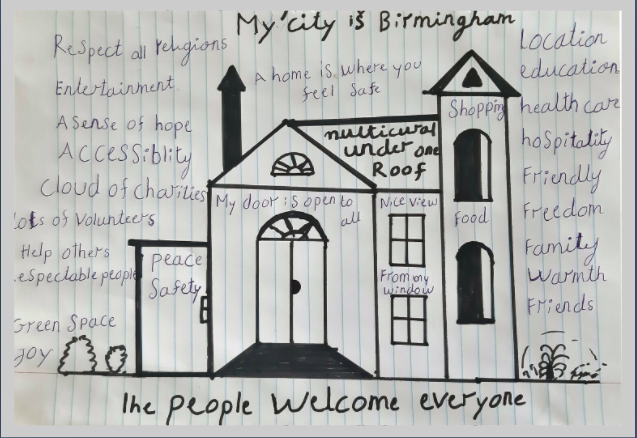 My city is Birmingham
Respect all religions
Entertainment
A sense of hope
Accessiblity
Cloud of charities
Lots of Volunteers
Help others
respectable people
Green Space
Joy
A home is where you
feel safe
multicural
under one
Roof
My door is open to
all
Peace
Safety
Nice view
From my
window
Shopping
Food
Location
education
health care
hospitality
Friendly
Freedom
Family
Warmth
Friends
The people Welcome everyone